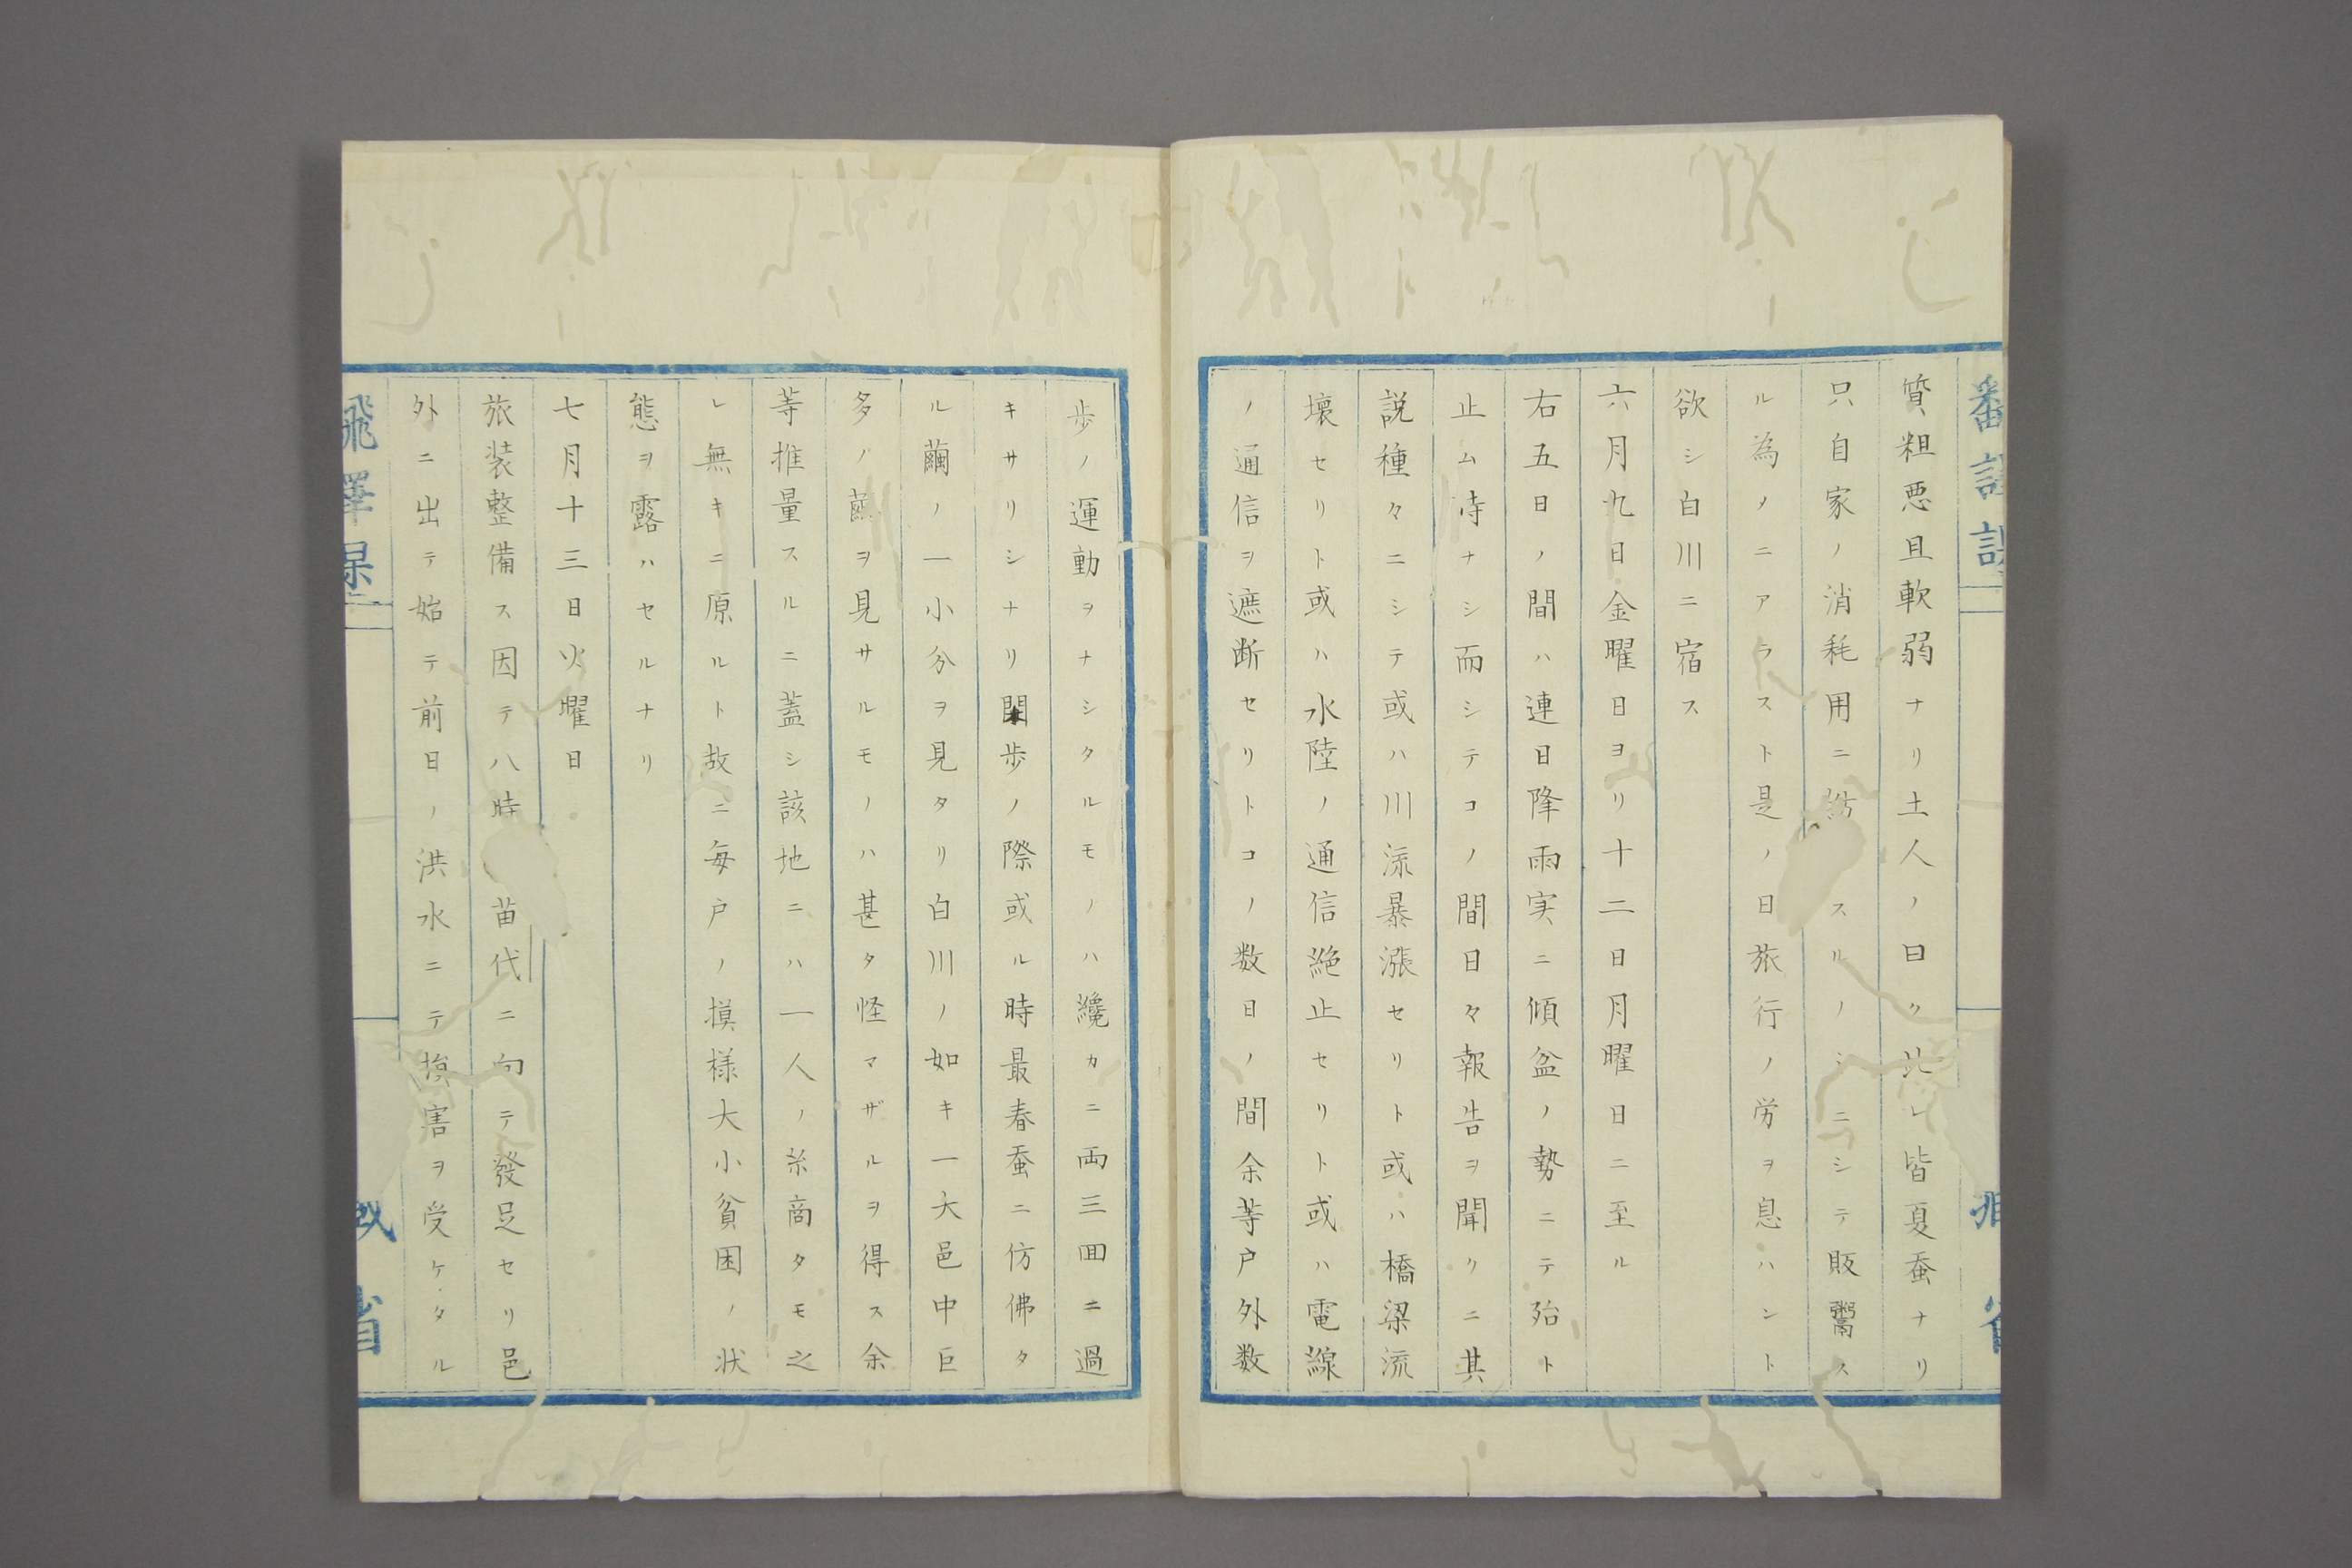 質粗悪且軟弱ナリ土人ノ曰ク此レ皆夏蚕ナリ
只自家ノ消耗用ニ紡スルノシニシテ販鬻ス
ル為メニアラスト是ノ日旅行ノ労ヲ息ハント
欲シ白川ニ宿ス
六月九日金曜日ヨリ十二日月曜日ニ至ル
右五日ノ間ハ連日降雨実ニ傾盆ノ勢ニテ殆ト
止ム時ナシ而シテコノ間日々報告ヲ聞クニ其
説種々ニシテ或ハ川流暴漲セリト或ハ橋梁流
壊セリト或ハ水陸ノ通信絶止セリト或ハ電線
ノ通信ヲ遮断セリトコノ数日ノ間余等戸外数
歩ノ運動ヲナシタルモノハ纔カニ両三回ニ過
キサリシナリ閑歩ノ際或ル時最春蚕ニ仿佛タ
ル繭ノ一小分ヲ見タリ白川ノ如キ一大邑中巨
多ノ繭ヲ見サルモノハ甚タ怪マザルヲ得ス余
等推量スルニ蓋シ該地ニハ一人ノ糸商タモ之
レ無キニ原ルト故ニ毎戸ノ摸様大小貧困ノ状
態ヲ露ハセルナリ
七月十三日火曜日
旅装整備ス因テ八時苗代ニ向テ發足セリ邑
外ニ出テ始テ前日ノ洪水ニテ損害ヲ受ケタル